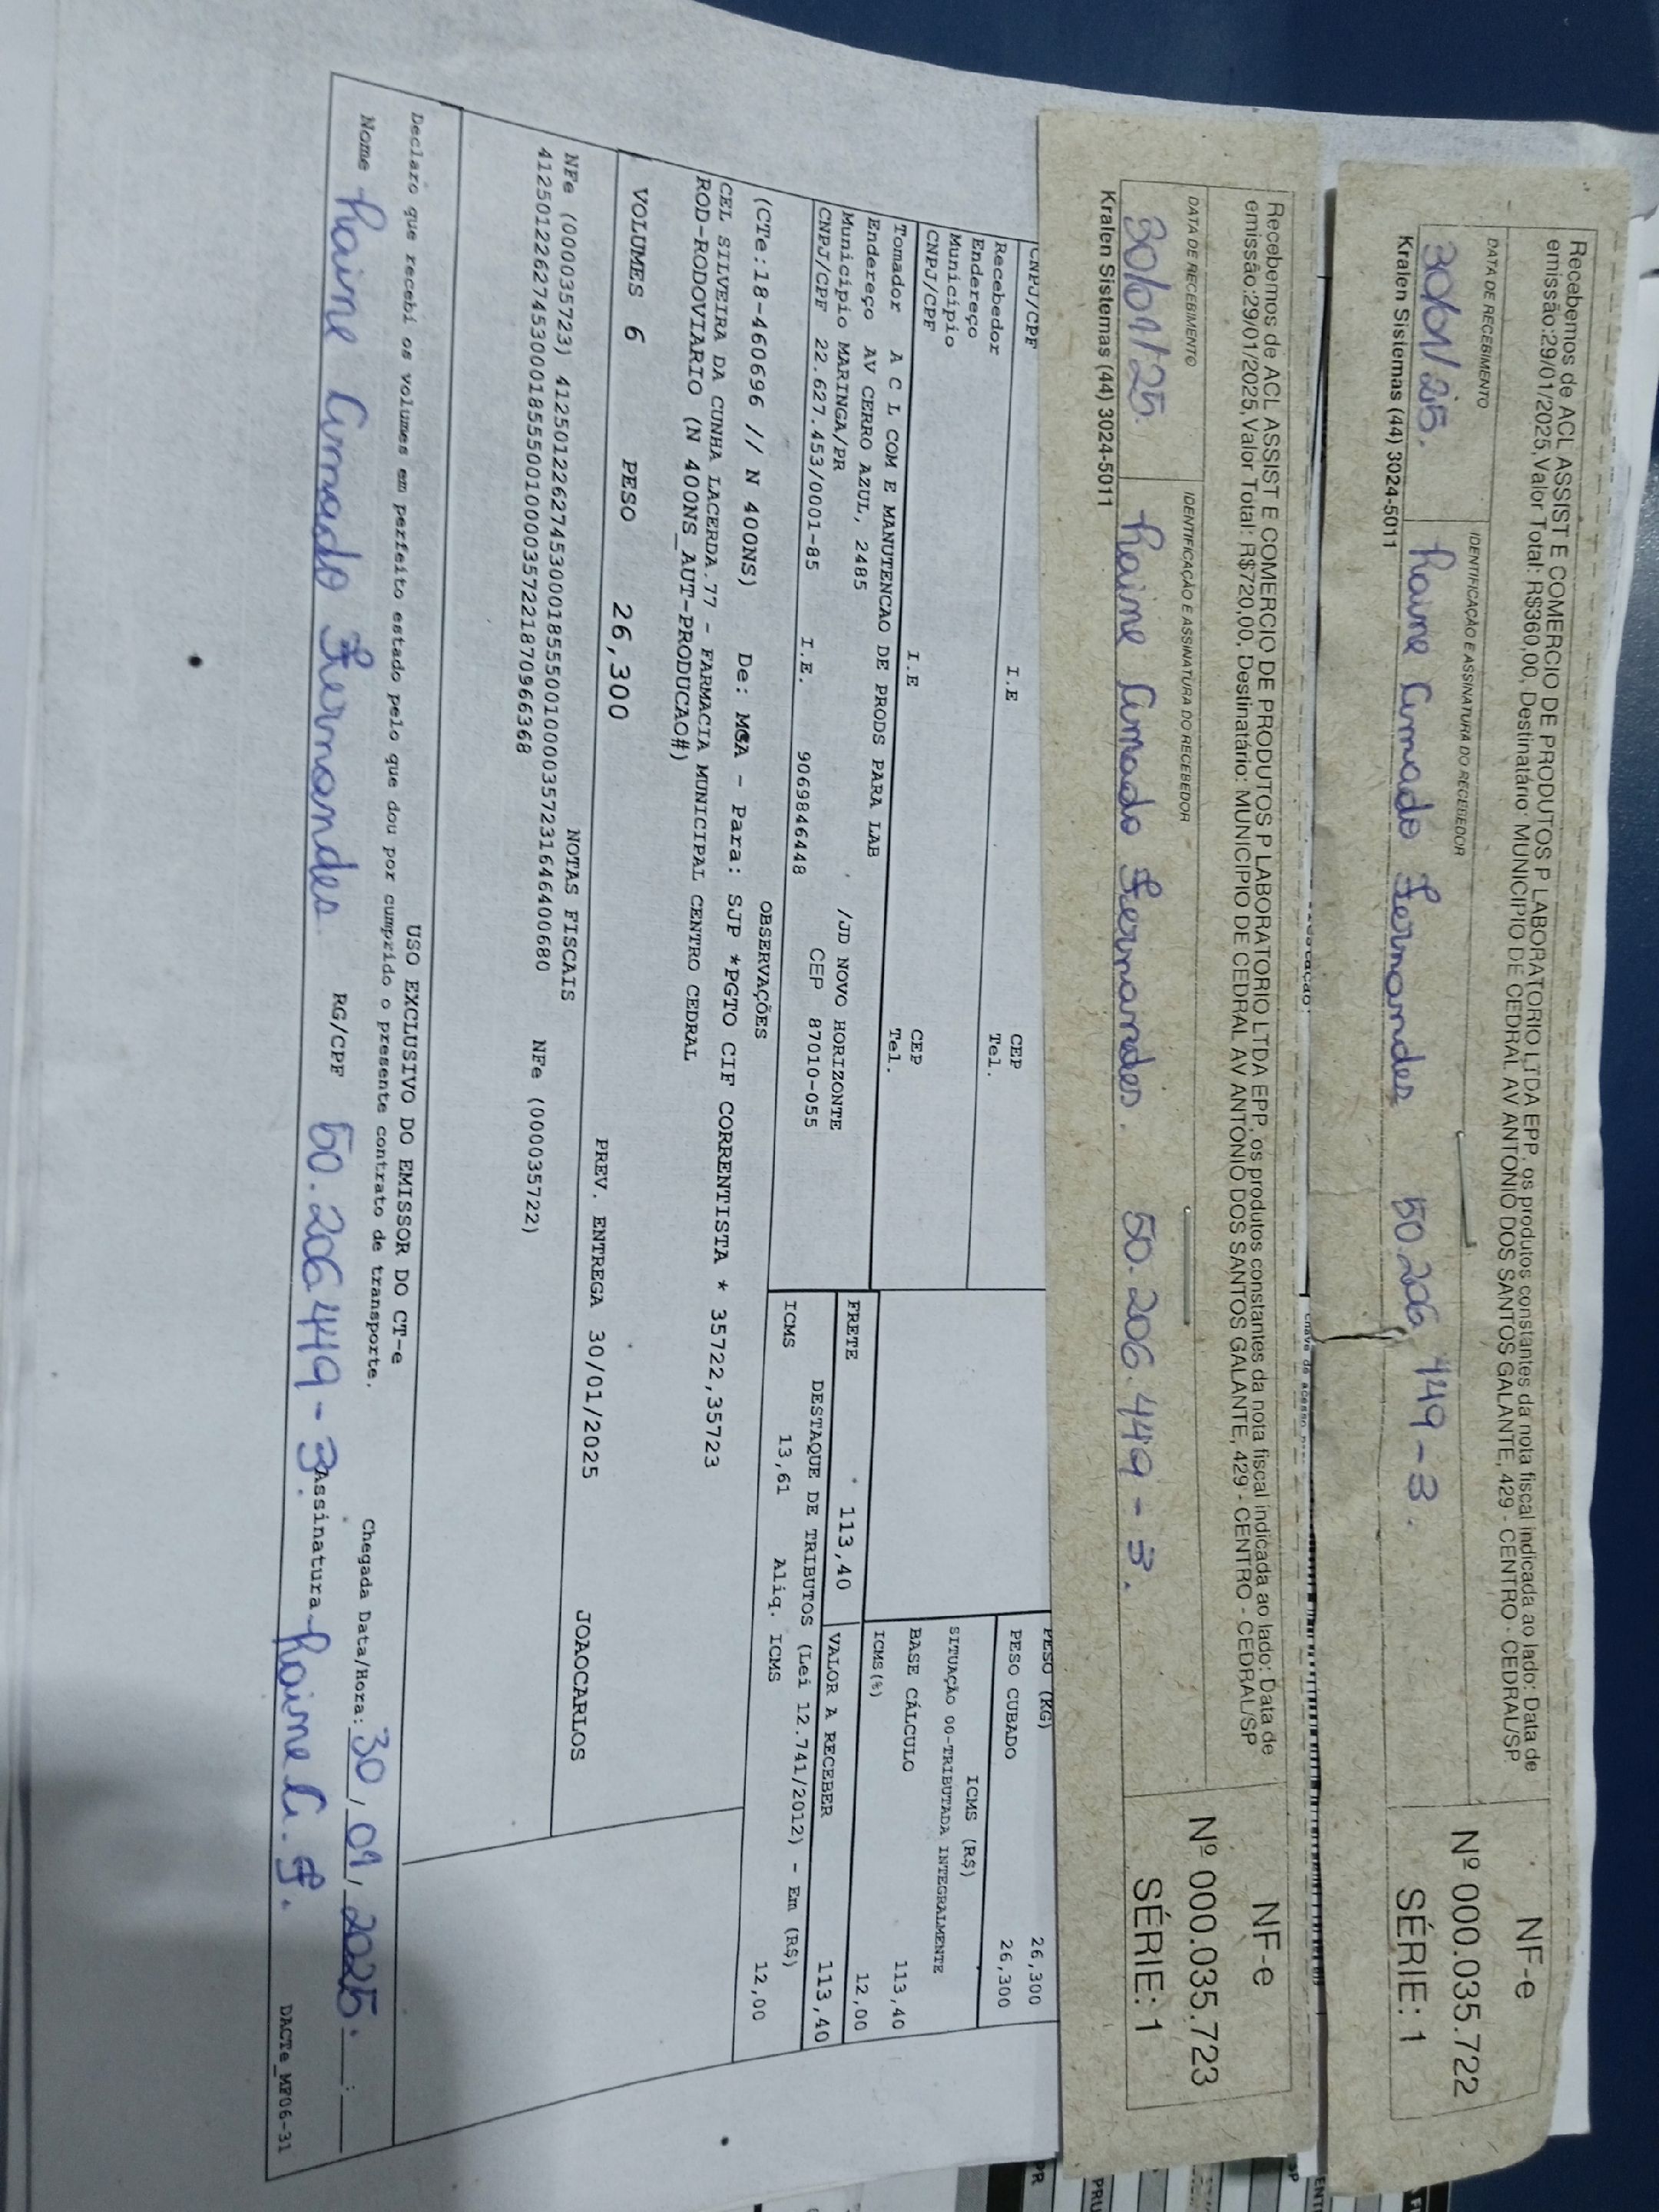 Recebemos de ACL ASSIST E COMERCIO DE PRODUTOS P LABORATORIO LTDA EPP, os produtos constantes da nota fiscal indicada ao lado: Data de
emissão:29/01/2025,Valor Total: R$360,00, Destinatário: MUNICIPIO DE CEDRAL AV ANTONIO DOS SANTOS GALANTE, 429 - CENTRO - CEDRAL/SP
NF-e
Nº 000.035.722
SÉRIE: 1
DATA DE RECEBIMENTO
IDENTIFICAÇÃO E ASSINATURA DO RECEBEDOR
30/01/25. Raine Amado Fernandes 50.206.449-3.
Kralen Sistemas (44) 3024-5011
Recebemos de ACL ASSIST E COMERCIO DE PRODUTOS P LABORATORIO LTDA EPP, os produtos constantes da nota fiscal indicada ao lado: Data de
emissão:29/01/2025,Valor Total: R$720,00, Destinatário: MUNICIPIO DE CEDRAL AV ANTONIO DOS SANTOS GALANTE, 429 - CENTRO - CEDRAL/SP
NF-e
Nº 000.035.723
SÉRIE: 1
DATA DE RECEBIMENTO
IDENTIFICAÇÃO E ASSINATURA DO RECEBEDOR
30/01/25. Raine Amado Fernandes. 50.206.449-3.
Kralen Sistemas (44) 3024-5011
CNPJ/CPF I.E
Recebedor CEP
Endereço Tel.
Município
CNPJ/CPF I.E CEP
Tel.
PESO (KG) 26,300
PESO CUBADO 26,300
ICMS (R$)
SITUAÇÃO 00-TRIBUTADA INTEGRALMENTE
BASE CÁLCULO 113,40
ICMS(%) 12,00
Tomador A C L COM E MANUTENCAO DE PRODS PARA LAB
Endereço AV CERRO AZUL, 2485 /JD NOVO HORIZONTE
Município MARINGA/PR CEP 87010-055
CNPJ/CPF 22.627.453/0001-85 I.E. 9069846448
FRETE 113,40 VALOR A RECEBER 113,40
DESTAQUE DE TRIBUTOS (Lei 12.741/2012) - Em (R$)
ICMS 13,61 Aliq. ICMS 12,00
OBSERVAÇÕES
(CTe:18-460696 // N 400NS) De: MGA - Para: SJP *PGTO CIF CORRENTISTA * 35722,35723
CEL SILVEIRA DA CUNHA LACERDA.77 - FARMACIA MUNICIPAL CENTRO CEDRAL
ROD-RODOVIARIO (N 400NS_AUT-PRODUCAO#)
VOLUMES 6 PESO 26,300 PREV. ENTREGA 30/01/2025 JOAOCARLOS
NOTAS FISCAIS
NFe (000035723) 41250122627453000185550010000357231646400680 NFe (000035722)
41250122627453000185550010000357221870966368
USO EXCLUSIVO DO EMISSOR DO CT-e
Declaro que recebi os volumes em perfeito estado pelo que dou por cumprido o presente contrato de transporte.
Chegada Data/Hora: 30/01/2025. __:__
Nome Raine Amado Fernandes RG/CPF 50.206449-3. Assinatura Raine A. F.
DACTe_MF06-31